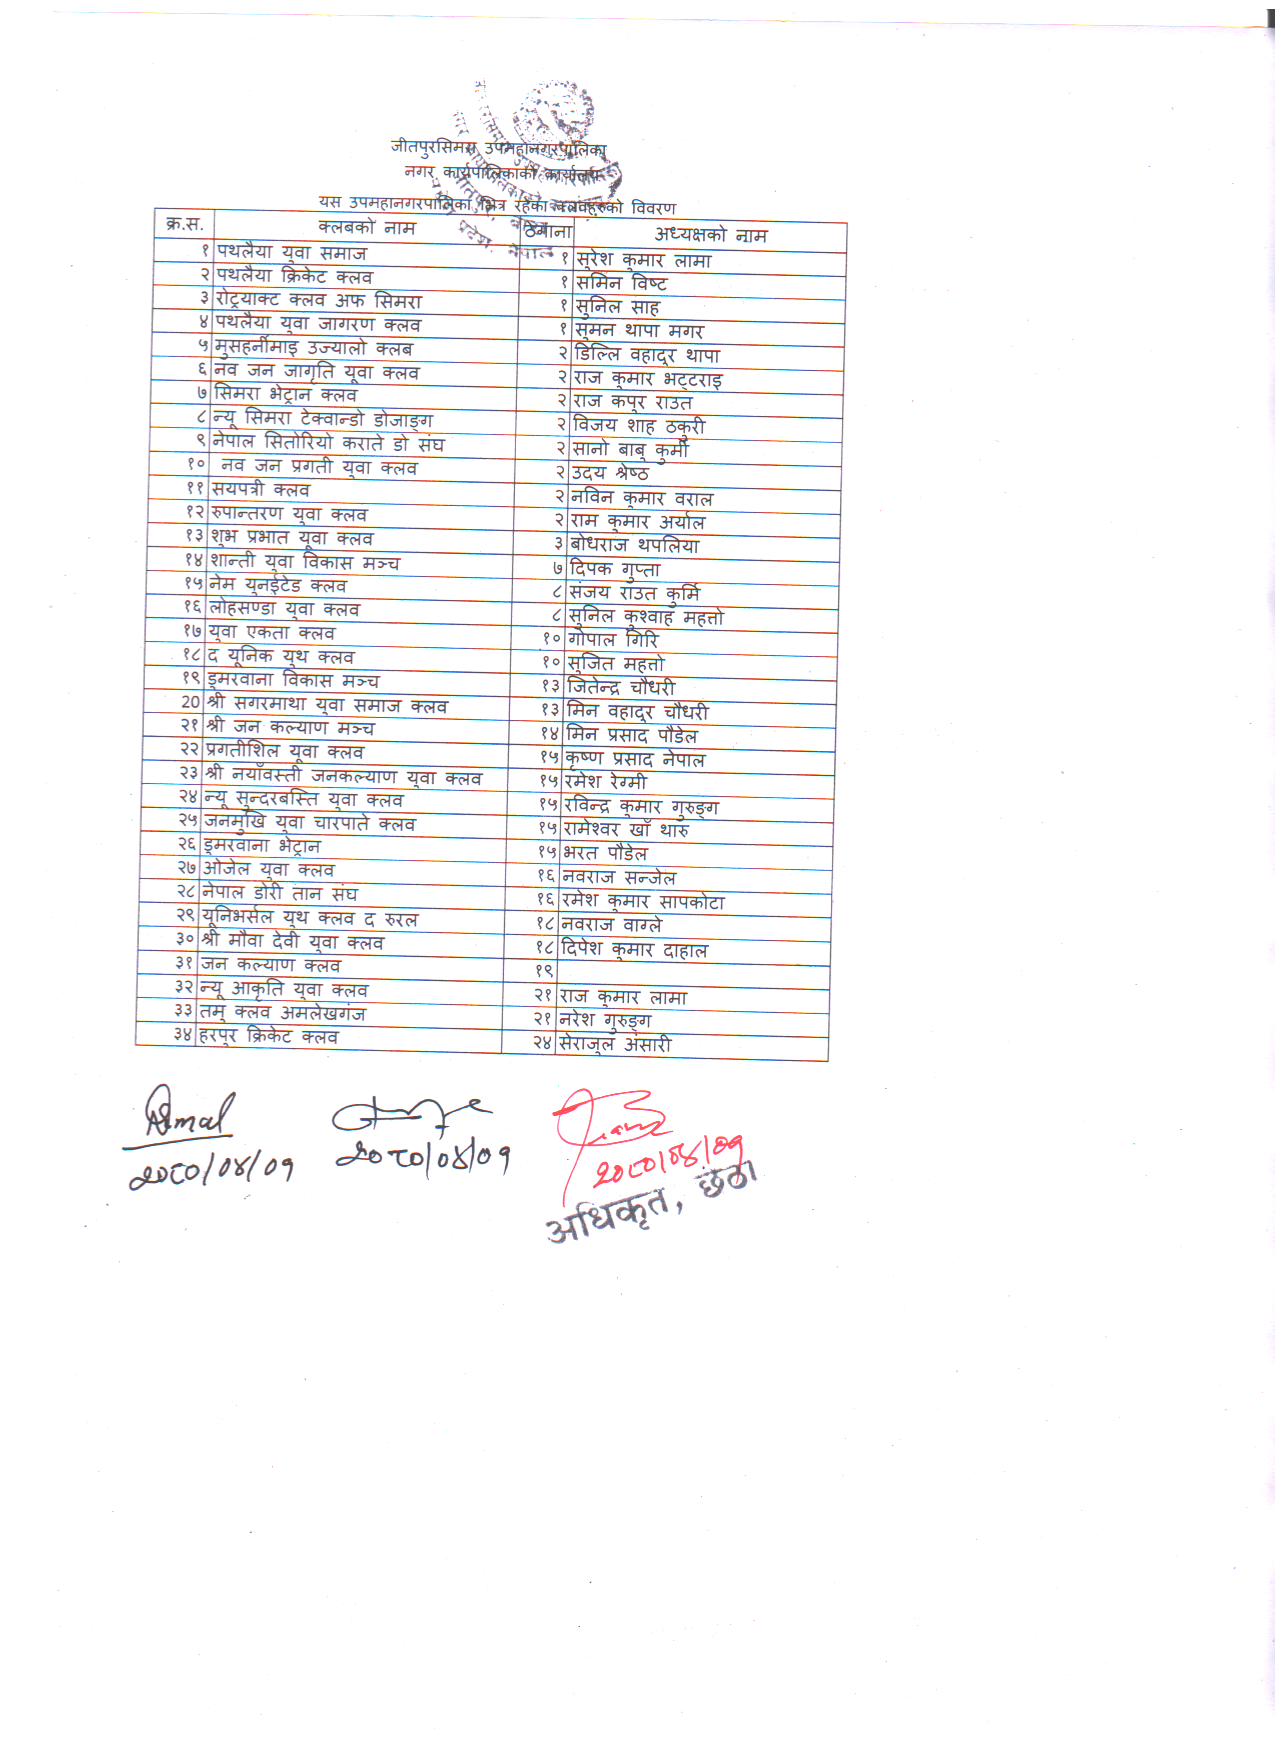 जीतपुरसिमरा उपमहानगरपालिका
नगर कार्यपालिकाको कार्यालय
यस उपमहानगरपालिका भित्र रहेका क्लवहरुको विवरण
क्र.स. क्लबको नाम ठेगाना अध्यक्षको नाम
१ पथलैया युवा समाज १ सुरेश कुमार लामा
२ पथलैया क्रिकेट क्लव १ समिन विष्ट
३ रोट्रयाक्ट क्लव अफ सिमरा १ सुनिल साह
४ पथलैया युवा जागरण क्लव १ सुमन थापा मगर
५ मुसहर्नीमाइ उज्यालो क्लब २ डिल्लि वहादुर थापा
६ नव जन जागृति यूवा क्लव २ राज कुमार भट्टराइ
७ सिमरा भेट्रान क्लव २ राज कपुर राउत
८ न्यू सिमरा टेक्वान्डो डोजाङ्ग २ विजय शाह ठकुरी
९ नेपाल सितोरियो कराते डो संघ २ सानो बाबु कुर्मी
१० नव जन प्रगती युवा क्लव २ उदय श्रेष्ठ
११ सयपत्री क्लव २ नविन कुमार वराल
१२ रुपान्तरण युवा क्लव २ राम कुमार अर्याल
१३ शुभ प्रभात यूवा क्लव ३ बोधराज थपलिया
१४ शान्ती युवा विकास मञ्च ७ दिपक गुप्ता
१५ नेम युनईटेड क्लव ८ संजय राउत कुर्मि
१६ लोहसण्डा युवा क्लव ८ सुनिल कुश्वाह महत्तो
१७ युवा एकता क्लव १० गोपाल गिरि
१८ द यूनिक युथ क्लव १० सुजित महत्तो
१९ डुमरवाना विकास मञ्च १३ जितेन्द्र चौधरी
20 श्री सगरमाथा युवा समाज क्लव १३ मिन वहादुर चौधरी
२१ श्री जन कल्याण मञ्च १४ मिन प्रसाद पौडेल
२२ प्रगतीशिल युवा क्लव १५ कृष्ण प्रसाद नेपाल
२३ श्री नयाँवस्ती जनकल्याण युवा क्लव १५ रमेश रेग्मी
२४ न्यू सुन्दरबस्ति युवा क्लव १५ रविन्द्र कुमार गुरुङ्ग
२५ जनमुखि युवा चारपाते क्लव १५ रामेश्वर खाँ थारु
२६ डुमरवाना भेट्रान १५ भरत पौडेल
२७ ओजेल युवा क्लव १६ नवराज सन्जेल
२८ नेपाल डोरी तान संघ १६ रमेश कुमार सापकोटा
२९ यूनिभर्सल युथ क्लव द रुरल १८ नवराज वाग्ले
३० श्री मौवा देवी युवा क्लव १८ दिपेश कुमार दाहाल
३१ जन कल्याण क्लव १९
३२ न्यू आकृति युवा क्लव २१ राज कुमार लामा
३३ तमु क्लव अमलेखगंज २१ नरेश गुरुङ्ग
३४ हरपुर क्रिकेट क्लव २४ सेराजुल अंसारी
२०८०/०४/०१ २०८०/०४/०१ २०८०/०४/०१
अधिकृत, छैठौ